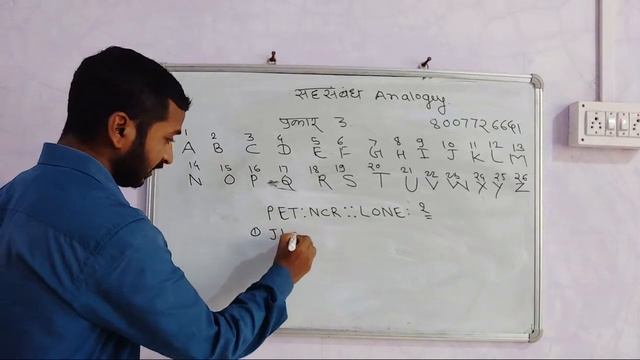 सहसंबंध Analogy.
प्रकार 3. 8007726641
1 2 3 4 5 6 7 8 9 10 11 12 13
A B C D E F G H I J K L M
14 15 16 17 18 19 20 21 22 23 24 25 26
N O P Q R S T U V W X Y Z
PET:NCR::LONE: ?
① J